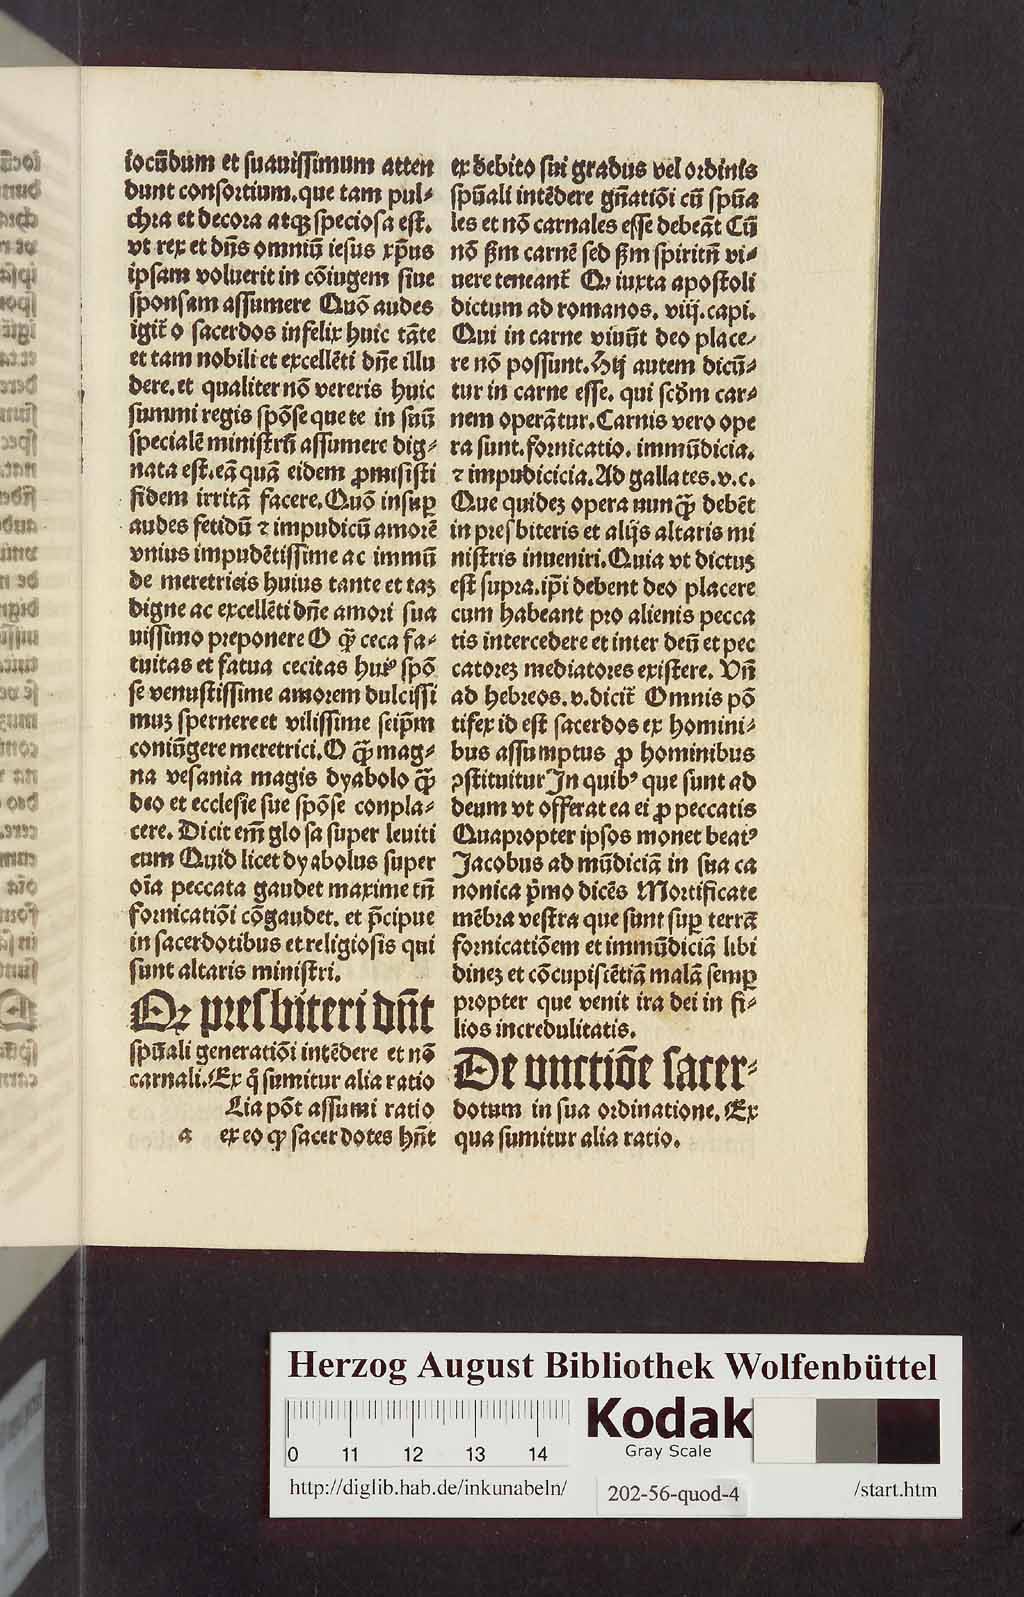 iocūdum et suauissimum atten
dunt consortium.que tam pul⸗
chra et decora atqꝫ speciosa est.
vt rex et dn̄s omniū iesus xp̄us
ipsam voluerit in cōiugem siue
sponsam assumere Quō audes
igit̄ o sacerdos infelix huic tāte
et tam nobili et excellēti dn̄e illu
dere.et qualiter nō vereris huic
summi regis spōse que te in suū
specialē ministrū assumere dig⸗
nata est.eā quā eidem ꝓmisisti
fidem irritā facere.Quō insuꝑ
audes fetidū ⁊ impudicū amorē
vnius impudētissime ac immū
de meretricis huius tante et taꝫ
digne ac excellēti dn̄e amori sua
uissimo preponere O ꝙ̄ ceca fa⸗
tuitas et fatua cecitas huiꝰ spō
se venustissime amorem dulcissi
muꝫ spernere et vilissime seip̄m
coniūgere meretrici.O ꝙ̄ mag⸗
na vesania magis dyabolo ꝙ̄
deo et ecclesie sue spōse conpla⸗
cere. Dicit em̄ glosa super leuiti
cum Quid licet dyabolus super
oīa peccata gaudet maxime tn̄
fornicatiōi cōgaudet. et p̄cipue
in sacerdotibus et religiosis qui
sunt altaris ministri.
Qꝛ presbiteri dn̄t
spūali generatiōi intēdere et nō
carnali.Ex q̄ sumitur alia ratio
Lia pōt assumi ratio
a ex eo ꝙ sacerdotes hn̄t
ex debito sui gradus vel ordinis
spūali intēdere gn̄atiōi cū spūa
les et nō carnales esse debeāt Cū
nō s̄m carnē sed s̄m spiritū vi⸗
uere teneant̄ Qꝛ iuxta apostoli
dictum ad romanos. viij.capi.
Qui in carne viuūt deo place⸗
re nō possunt.Hij autem dicū⸗
tur in carne esse. qui scd̄m car⸗
nem operātur.Carnis vero ope
ra sunt.fornicatio. immūdicia.
⁊ impudicicia.Ad gallates.v.c.
Que quideꝫ opera nunꝙ̄ debēt
in presbiteris et alijs altaris mi
nistris inueniri.Quia vt dictuꝫ
est supra.ip̄i debent deo placere
cum habeant pro alienis pecca
tis intercedere et inter deū et pec
catoreꝫ mediatores existere. Vn̄
ad hebreos.v.dicit̄ Omnis pō
tifex id est sacerdos ex homini⸗
bus assumptus ꝓ hominibus
ꝯstituitur In quibꝰ que sunt ad
deum vt offerat ea ei ꝓ peccatis
Quapropter ipsos monet beatꝰ
Jacobus ad mūdiciā in sua ca
nonica p̄mo dicēs Mortificate
mēbra vestra que sunt suꝑ terrā
fornicatiōem et immūdiciā libi
dineꝫ et cōcupiscētiā malā semꝑ
propter que venit ira dei in fi⸗
lios incredulitatis.
De vnctiōe sacer⸗
dotum in sua ordinatione. Ex
qua sumitur alia ratio.
Herzog August Bibliothek Wolfenbüttel
0 11 12 13 14
Kodak
Gray Scale
http://diglib.hab.de/inkunabeln/
202-56-quod-4
/start.htm